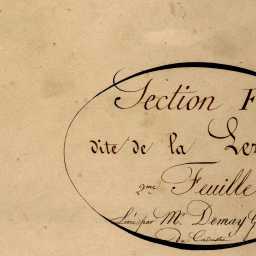 Section F
dite de la Le
2me Feuille
Levé par Mr. Demay G
du Cadastre